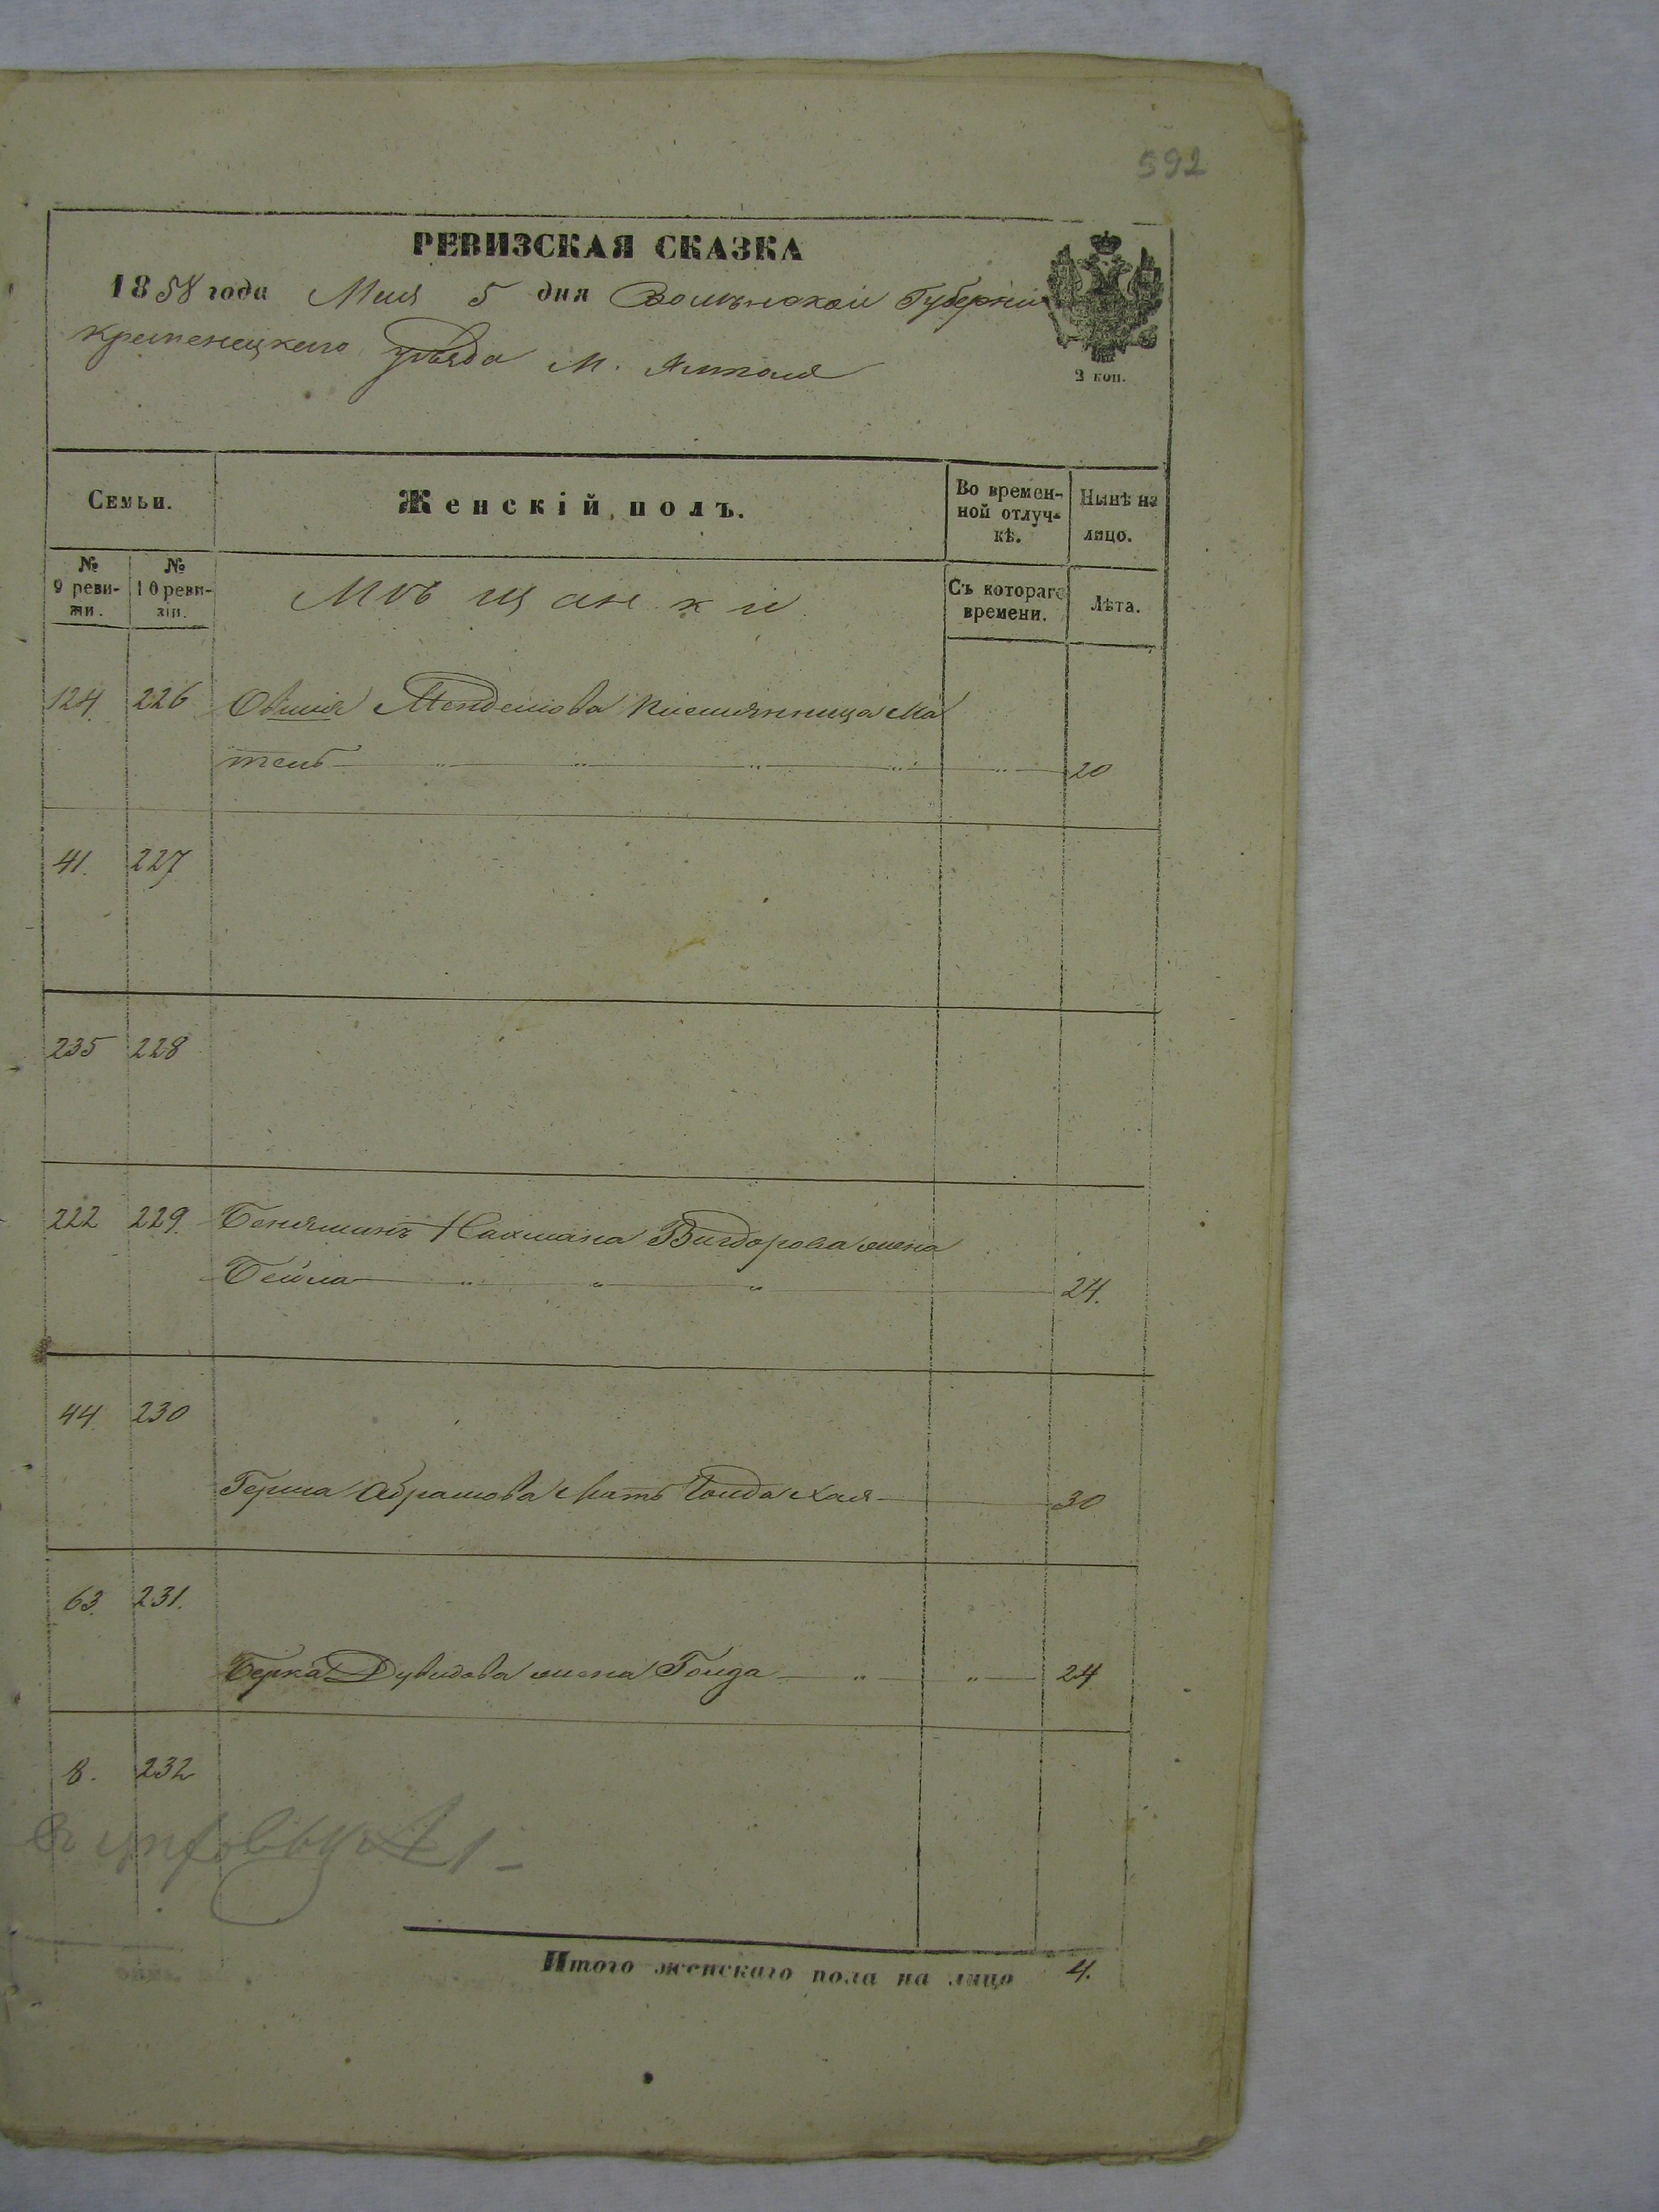 592
РЕВИЗСКАЯ СКАЗКА
1858 года Мая 5 дня Волынской Губерніи
Кременецкаго уѣзда М. Ямполя
3 коп.
Семьи.
Женскій полъ.
Во времен-
ной отлуч-
кѣ.
Нынѣ на
лицо.
№
9 реви-
зіи.
№
10 реви-
зіи.
Мѣщанки
Съ котораго
времени.
Лѣта.
124. 226 Овшія Менделiова племянница Ма
тель 20
41. 227
235 228
222 229. Беняминъ Нахмана Вигдорова жена
Бейла 24.
44. 230
Герша Абрамова мать Голда Хая 30
63. 231.
Берка Дувидова жена Голда 24
8. 232
1-
Итого женскаго пола на лицо 4.